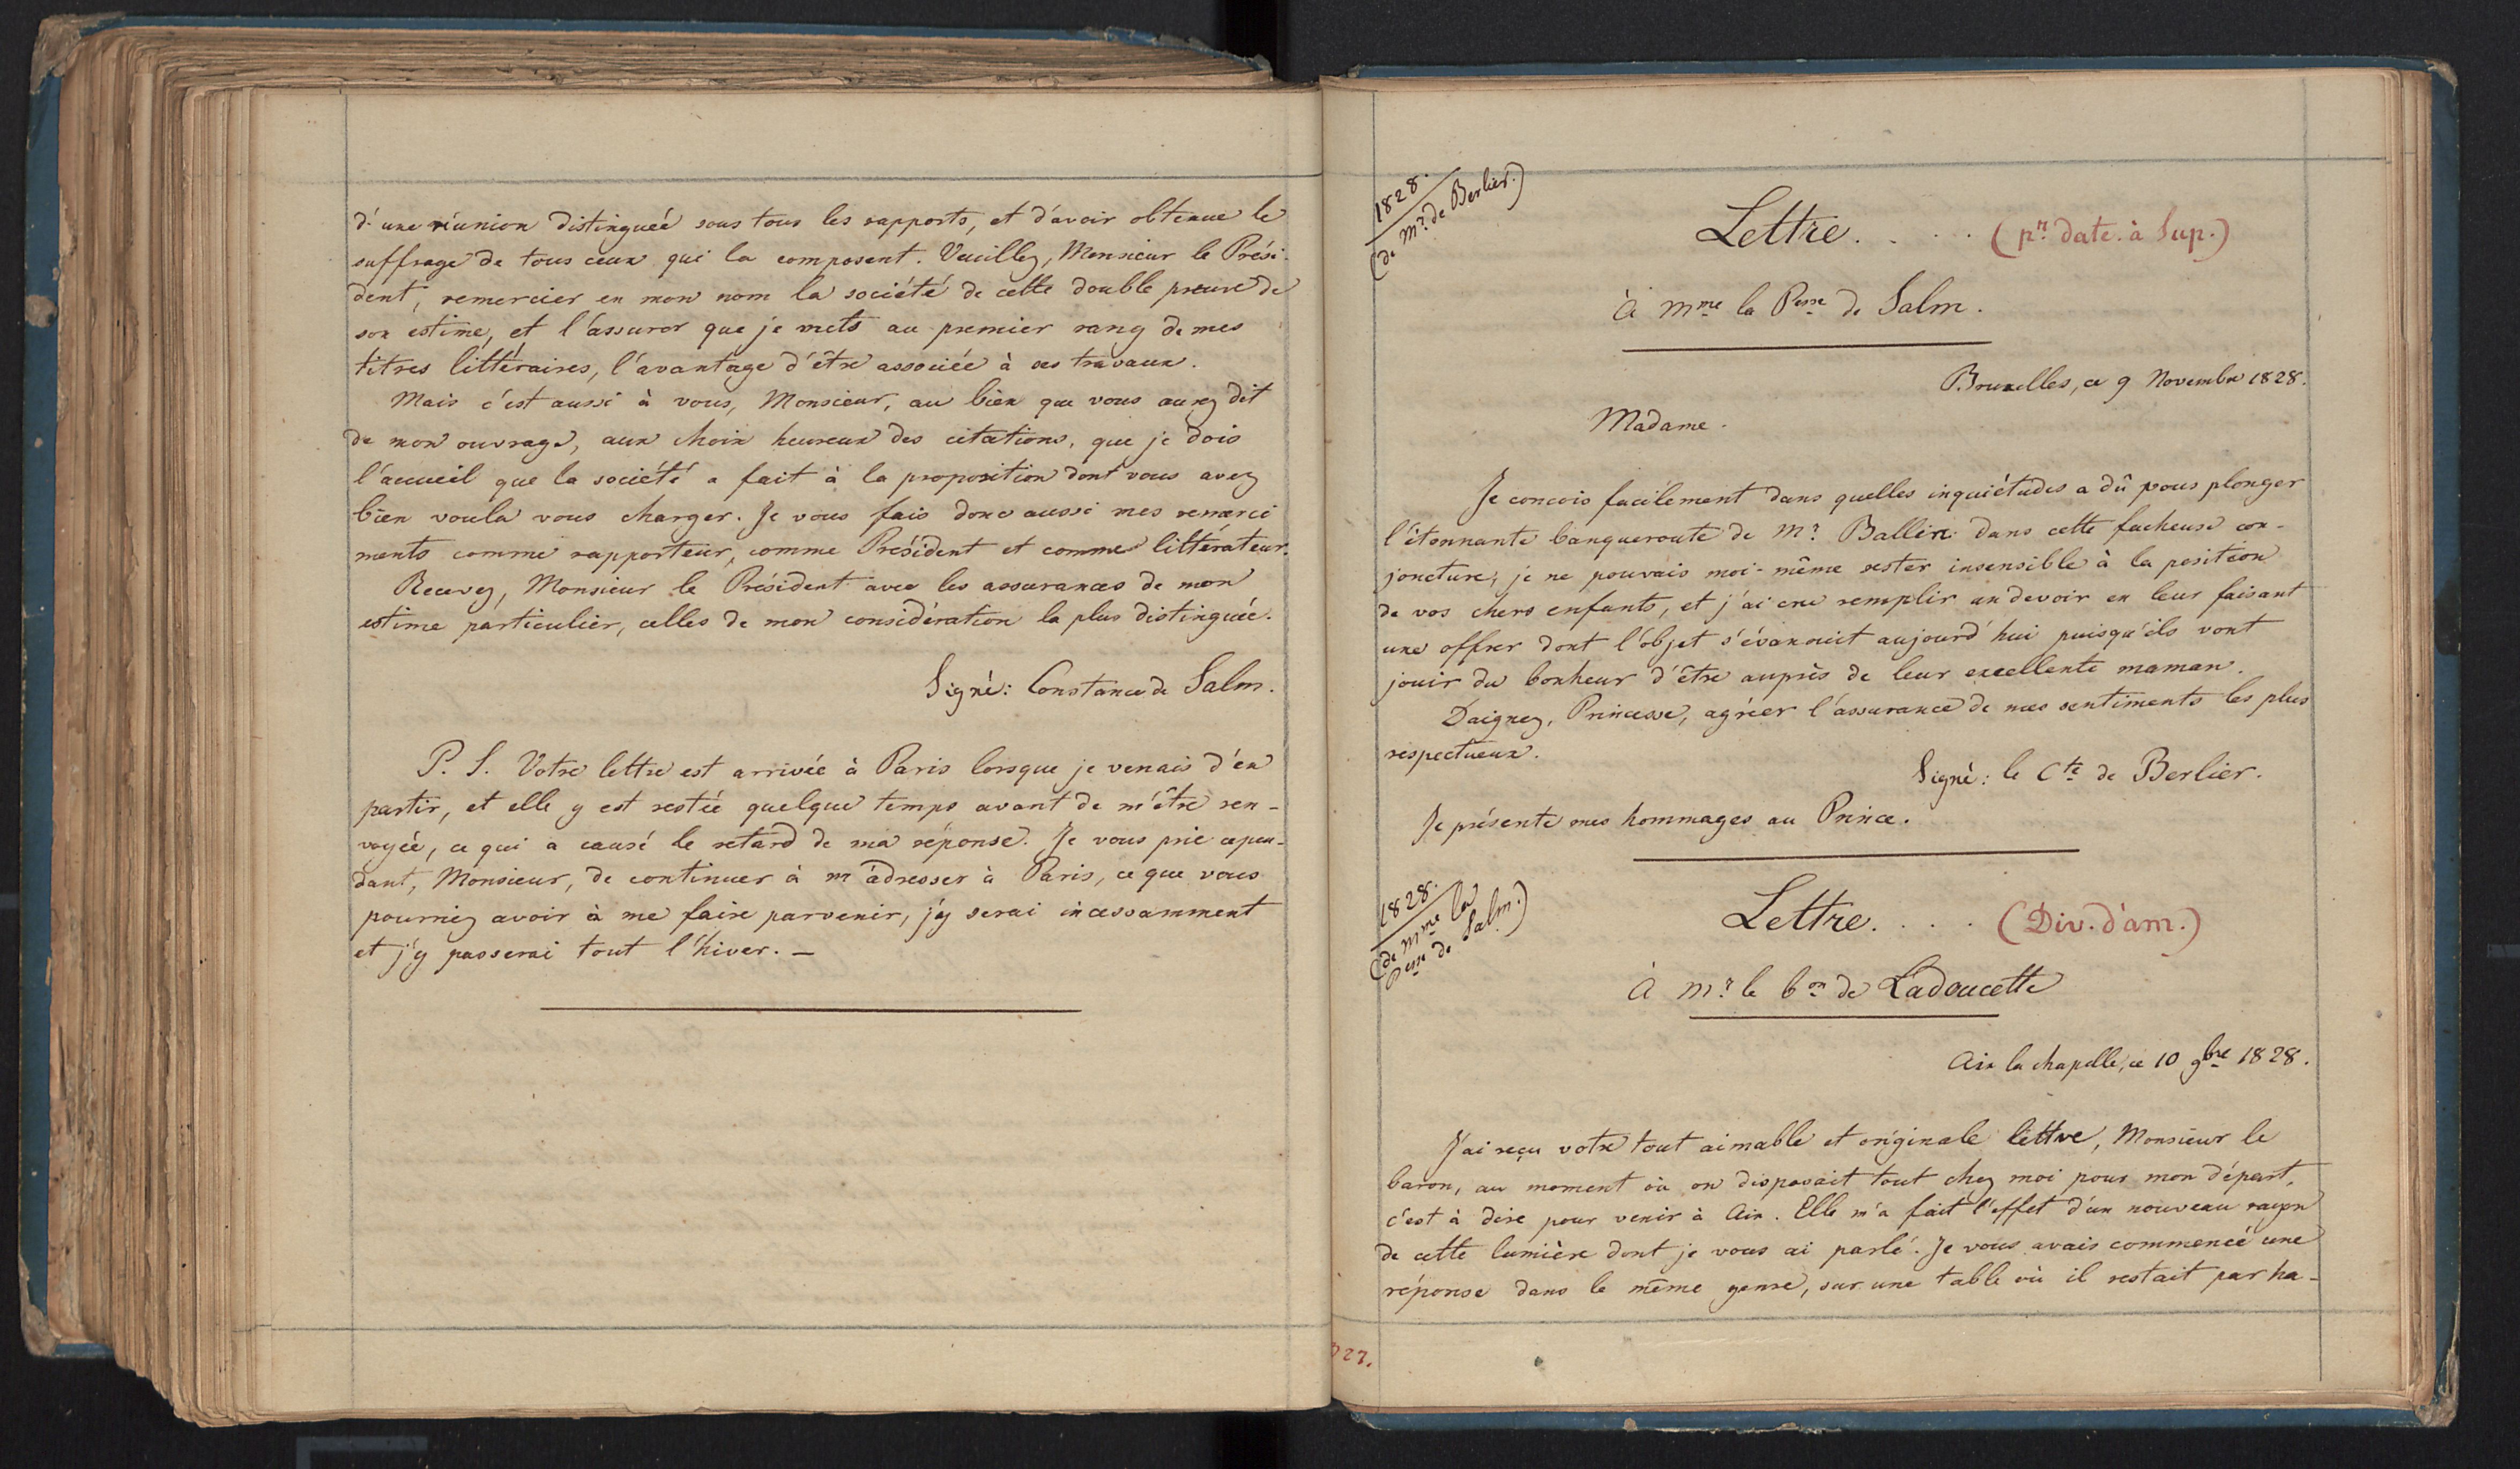 d'une réunion distinguée sous tous les rapports, et d'avoir obtenue le
suffrage de tous ceux qui la composent. Veuillez, Monsieur le Prési-
dent, remercier en mon nom la société de cette double preuve de
son estime, et l'assurer que je mets au premier rang de mes
titres littéraires, l'avantage d'être associée à ses travaux.
Mais c'est aussi à vous, Monsieur, au bien que vous aurez dit
de mon ouvrage, aux choix heureux des citations, que je dois
l'accueil que la société a fait à la proposition dont vous avez
bien voulu vous charger. Je vous fais donc aussi mes remerci
ments comme rapporteur, comme Président et comme littérateur.
Recevez, Monsieur le Président avec les assurances de mon
estime particulier, celles de mon considération la plus distinguée.
Signé: Constance de Salm.
P. S. Votre lettre est arrivée à Paris lorsque je venais d'en
partir, et elle y est restée quelque temps avant de m'être ren-
voyée, ce qui a causé le retard de ma réponse. Je vous prie cepen-
dant, Monsieur, de continuer à m'adresser à Paris, ce que vous
pourriez avoir à me faire parvenir, j'y serai incessamment
et j'y passerai tout l'hiver. —
1828.
(de Mr. de Berlier.)
Lettre. . . . (pr. date. à Sup.)
À Mme la Pesse de Salm.
Bruxelles, ce 9 Novembre 1828.
Madame.
Je concois facilement dans quelles inquiétudes a dû vous plonger
l'étonnante banqueroute de Mr. Ballin: dans cette facheuse con-
joncture, je ne pouvais moi-même rester insensible à la position
de vos chers enfants, et j'ai cru remplir un devoir en leur faisant
une offrer dont l'objet s'évanouit aujourd'hui puisqu'ils vont
jouir du bonheur d'être auprès de leur excellente maman.
Daignez, Princesse, agréer l'assurance de mes sentiments les plus
respectueux.
Signé: le Cte de Berlier.
Je présente mes hommages au Prince.
1828.
(de Mme la
Pesse de Salm.)
Lettre. . . . (Div. d'am.)
À Mr. le bon de Ladoucette
Aix la chapelle, ce 10 9bre 1828.
J'ai reçu votre tout aimable et originale lettre, Monsieur le
baron, au moment où on disposait tout chez moi pour mon départ,
c'est à dire pour venir à Aix. Elle m'a fait l'effet d'un nouveau rayon
de cette lumière dont je vous ai parlé. Je vous avais commencé une
réponse dans le même genre, sur une table où il restait par ha-